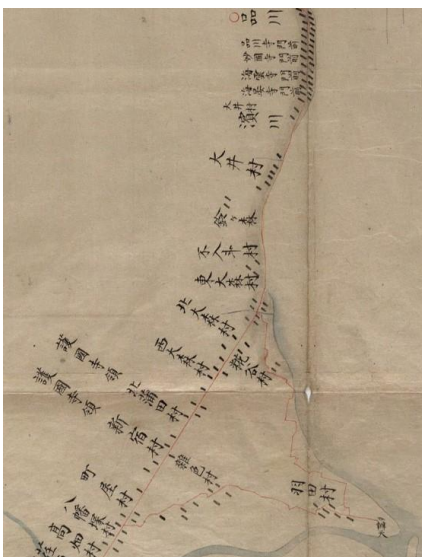 品川
品川寺門前
妙國寺門前
海雲寺門前
海晏寺門前
大井村
濱川
大井村
鈴ヶ森
不入斗村
東大森村
北大森村
西大森村
糀谷村
護國寺領
護國寺領
北蒲田村
新宿村
雜色村
町屋村
八幡塚村
高畑村
羽田村